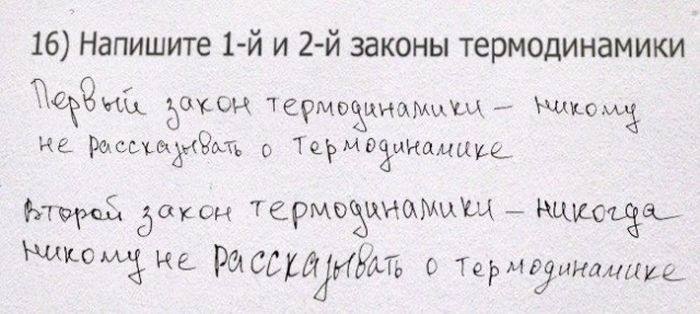 16) Напишите 1-й и 2-й законы термодинамики
Первый закон термодинамики – никому
не рассказывать о термодинамике
Второй закон термодинамики – никогда
никому не рассказывать о термодинамике